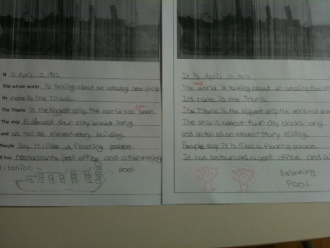 It is April 10 1912
The whole world is talking about an amazing new ship
It's name is the Titanic
The Titanic is the biggest ship the world has seen
The ship is almost four city blocks long
and as tall as eleven story building
People say it's like a floating palace
It has restaurants post office and a swimming
pool
It is April 10 1912
The world is talking about an amazing
It's name is the Titanic
The Titanic is the biggest ship the world
The ship is almost four city blocks long
and as tall as an eleven story building
People say it is like a floating palace
It has restaurants a post office and a
swimming
pool